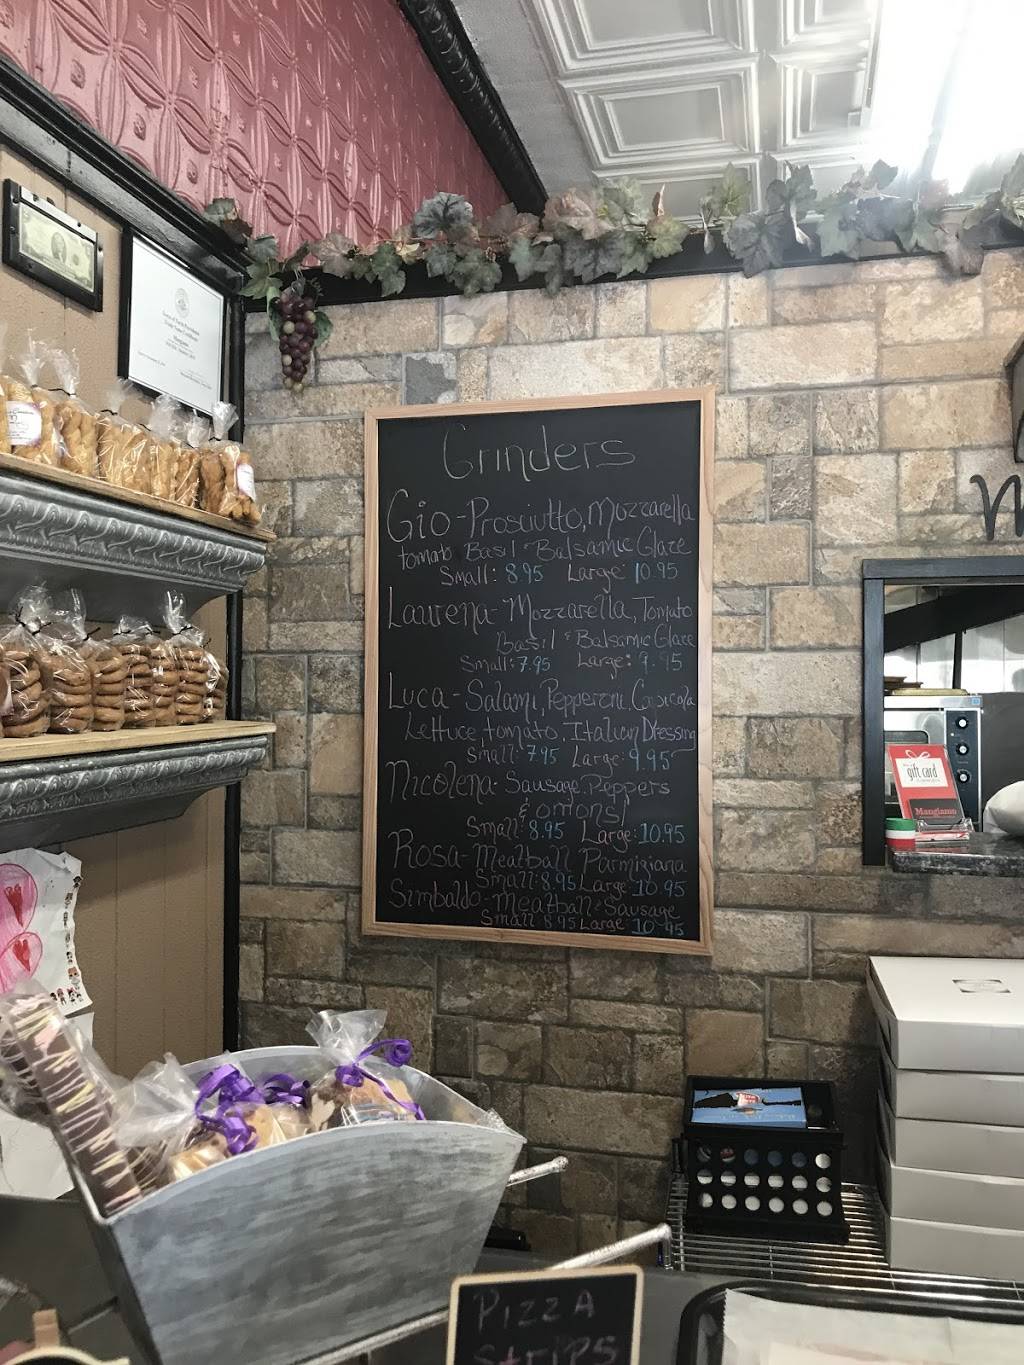 Grinders
Gio - Prosciutto, Mozzarella
tomato Basil & Balsamic Glaze
Small: 8.95 Large: 10.95
Laurena - Mozzarella, Tomato
Basil & Balsamic Glaze
Small: 7.95 Large: 9.95
Luca - Salami, Pepperoni, Capicola
Lettuce, tomato, Italian Dressing
Small: 7.95 Large: 9.95
Nicolena - Sausage, Peppers
& onions
Small: 8.95 Large: 10.95
Rosa - Meatball Parmigiana
Small: 8.95 Large: 10.95
Simbaldo - Meatball & Sausage
Small 8.95 Large 10.95
gift card
Mangiamo
PIZZA
STRIPS